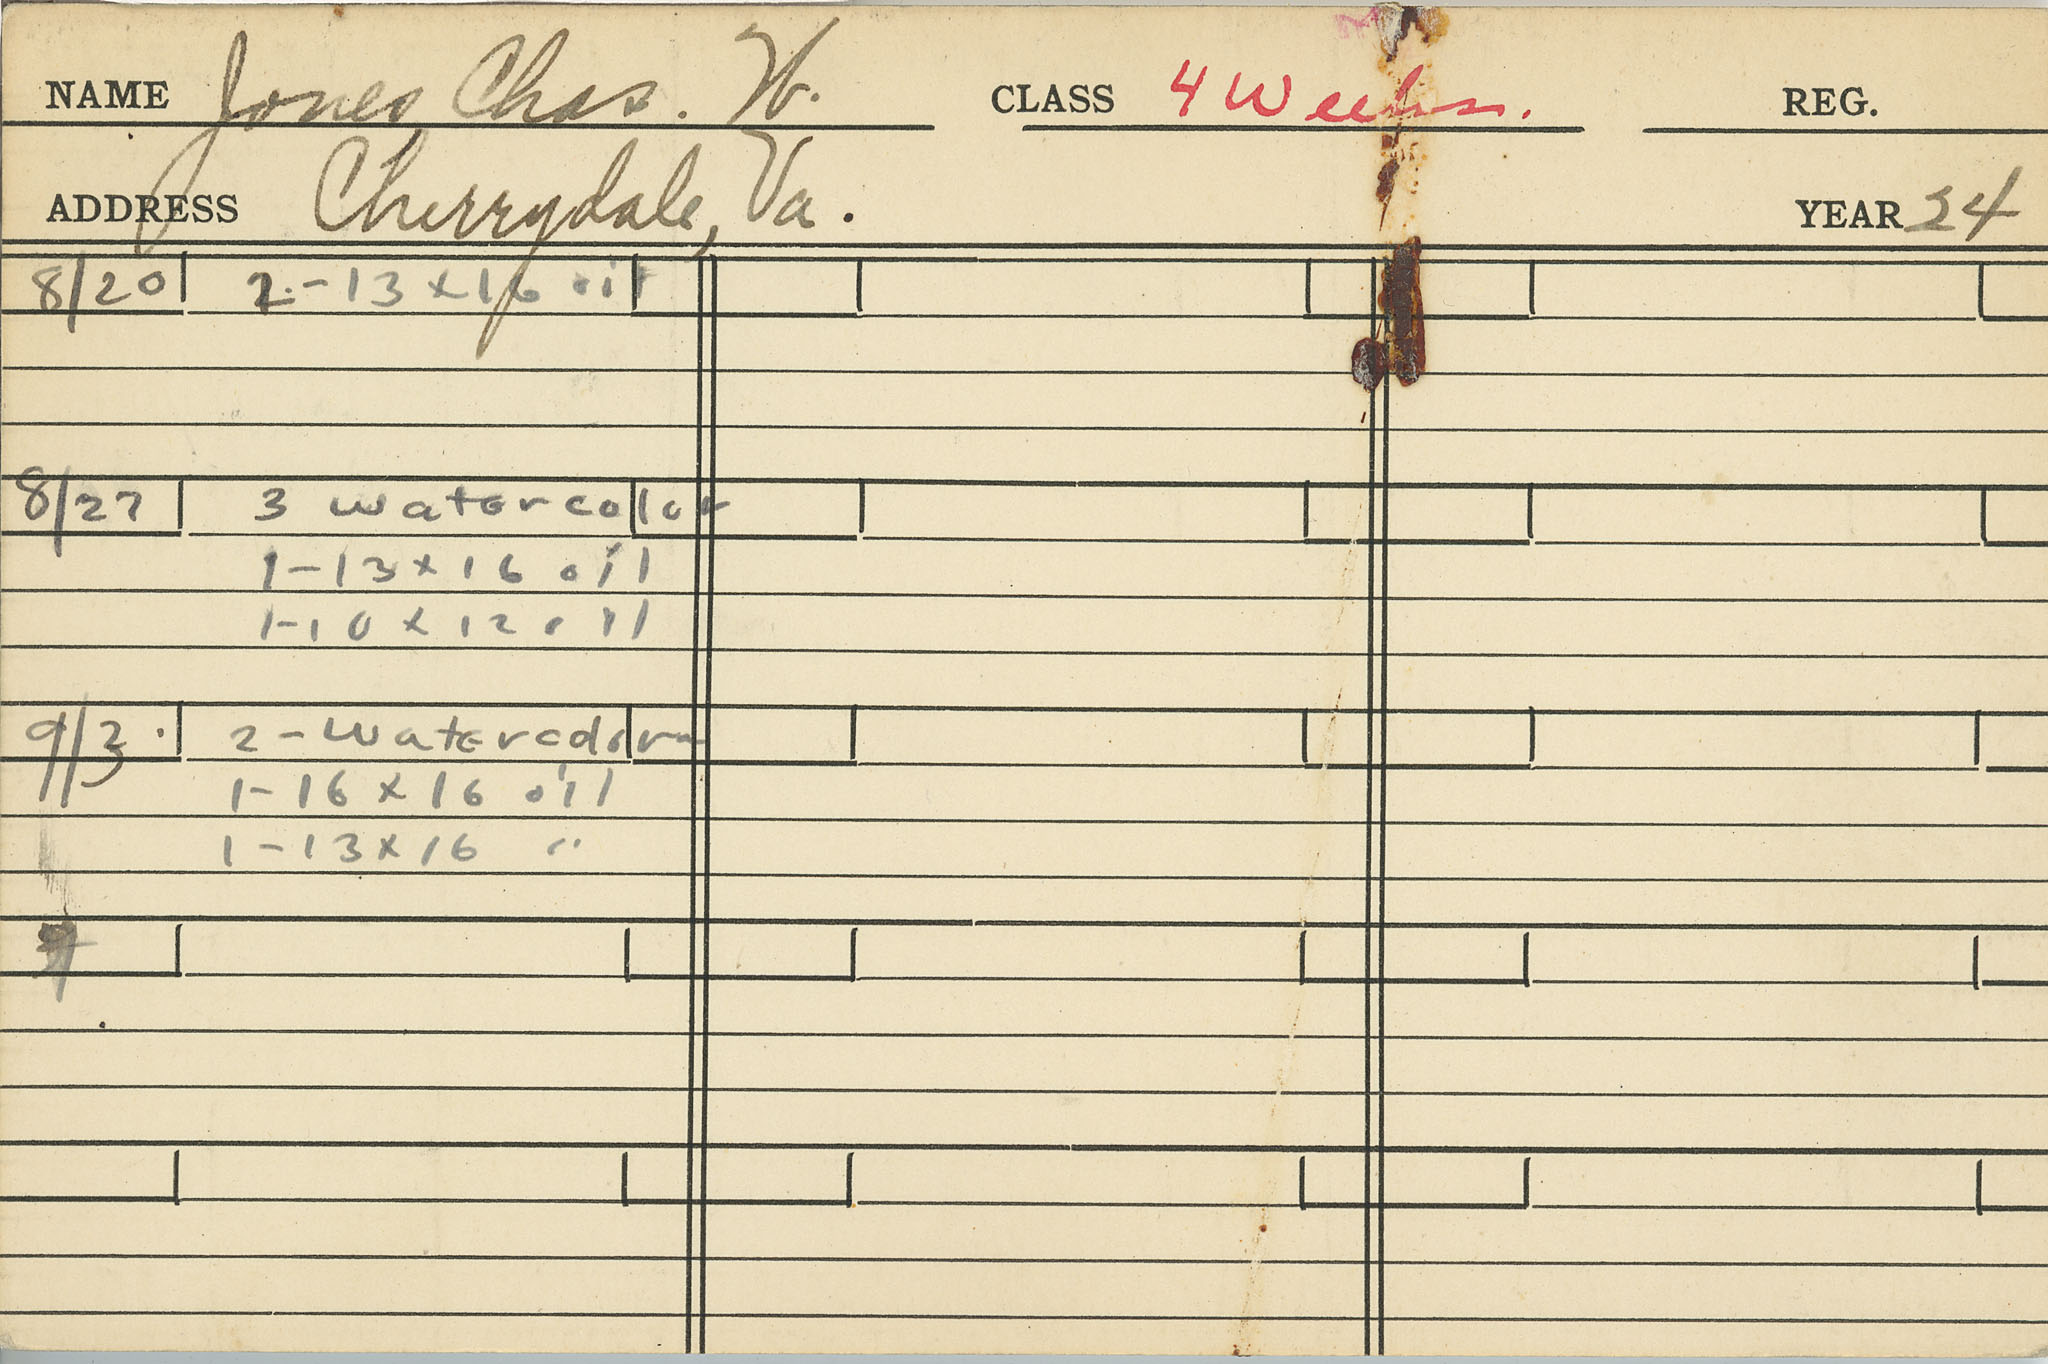 NAME Jones Chas. W. CLASS 4 Weeks. REG.
ADDRESS Cherrydale, Va. YEAR 24
8/20 2-13x16 oil
8/27 3 watercolor
1-13x16 oil
1-10x12 oil
9/3. 2-watercolors
1-16x16 oil
1-13x16 "